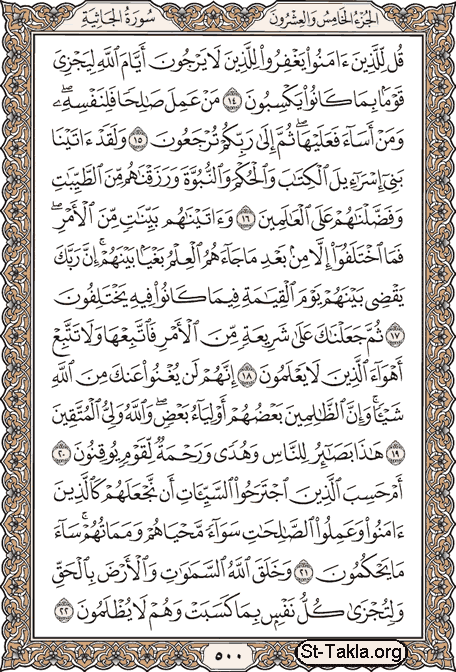 الجزء الخامس والعشرون
سورة الجاثية
قُل لِّلَّذِينَ ءَامَنُوا۟ يَغْفِرُوا۟ لِلَّذِينَ لَا يَرْجُونَ أَيَّامَ ٱللَّهِ لِيَجْزِىَ
قَوْمًۢا بِمَا كَانُوا۟ يَكْسِبُونَ ١٤ مَنْ عَمِلَ صَٰلِحًا فَلِنَفْسِهِۦ ۖ
وَمَنْ أَسَآءَ فَعَلَيْهَا ۖ ثُمَّ إِلَىٰ رَبِّكُمْ تُرْجَعُونَ ١٥ وَلَقَدْ ءَاتَيْنَا
بَنِىٓ إِسْرَٰٓءِيلَ ٱلْكِتَٰبَ وَٱلْحُكْمَ وَٱلنُّبُوَّةَ وَرَزَقْنَٰهُم مِّنَ ٱلطَّيِّبَٰتِ
وَفَضَّلْنَٰهُمْ عَلَى ٱلْعَٰلَمِينَ ١٦ وَءَاتَيْنَٰهُم بَيِّنَٰتٍ مِّنَ ٱلْأَمْرِ ۖ
فَمَا ٱخْتَلَفُوٓا۟ إِلَّا مِنۢ بَعْدِ مَا جَآءَهُمُ ٱلْعِلْمُ بَغْيًۢا بَيْنَهُمْ ۚ إِنَّ رَبَّكَ
يَقْضِى بَيْنَهُمْ يَوْمَ ٱلْقِيَٰمَةِ فِيمَا كَانُوا۟ فِيهِ يَخْتَلِفُونَ
١٧ ثُمَّ جَعَلْنَٰكَ عَلَىٰ شَرِيعَةٍ مِّنَ ٱلْأَمْرِ فَٱتَّبِعْهَا وَلَا تَتَّبِعْ
أَهْوَآءَ ٱلَّذِينَ لَا يَعْلَمُونَ ١٨ إِنَّهُمْ لَن يُغْنُوا۟ عَنكَ مِنَ ٱللَّهِ
شَيْـًٔا ۚ وَإِنَّ ٱلظَّٰلِمِينَ بَعْضُهُمْ أَوْلِيَآءُ بَعْضٍ ۖ وَٱللَّهُ وَلِىُّ ٱلْمُتَّقِينَ
١٩ هَٰذَا بَصَٰٓئِرُ لِلنَّاسِ وَهُدًى وَرَحْمَةٌ لِّقَوْمٍ يُوقِنُونَ ٢٠
أَمْ حَسِبَ ٱلَّذِينَ ٱجْتَرَحُوا۟ ٱلسَّيِّـَٔاتِ أَن نَّجْعَلَهُمْ كَٱلَّذِينَ
ءَامَنُوا۟ وَعَمِلُوا۟ ٱلصَّٰلِحَٰتِ سَوَآءً مَّحْيَاهُمْ وَمَمَاتُهُمْ ۚ سَآءَ
مَا يَحْكُمُونَ ٢١ وَخَلَقَ ٱللَّهُ ٱلسَّمَٰوَٰتِ وَٱلْأَرْضَ بِٱلْحَقِّ
وَلِتُجْزَىٰ كُلُّ نَفْسٍۭ بِمَا كَسَبَتْ وَهُمْ لَا يُظْلَمُونَ ٢٢
٥٠٠
St-Takla.org